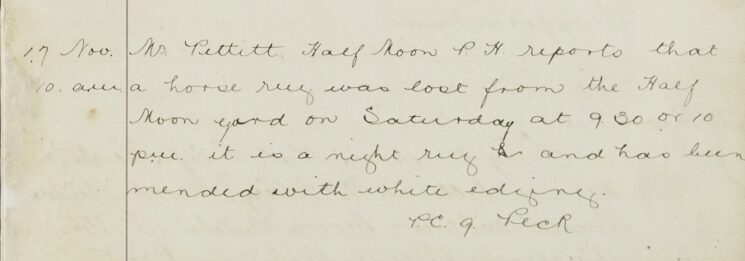 17 Nov. Mr. Pettitt, Half Moon P. H. reports that
10. am a horse rug was lost from the Half
Moon yard on Saturday at 9.30 or 10
pm. it is a night rug and has been
mended with white edging.
P.C. 9. Peck